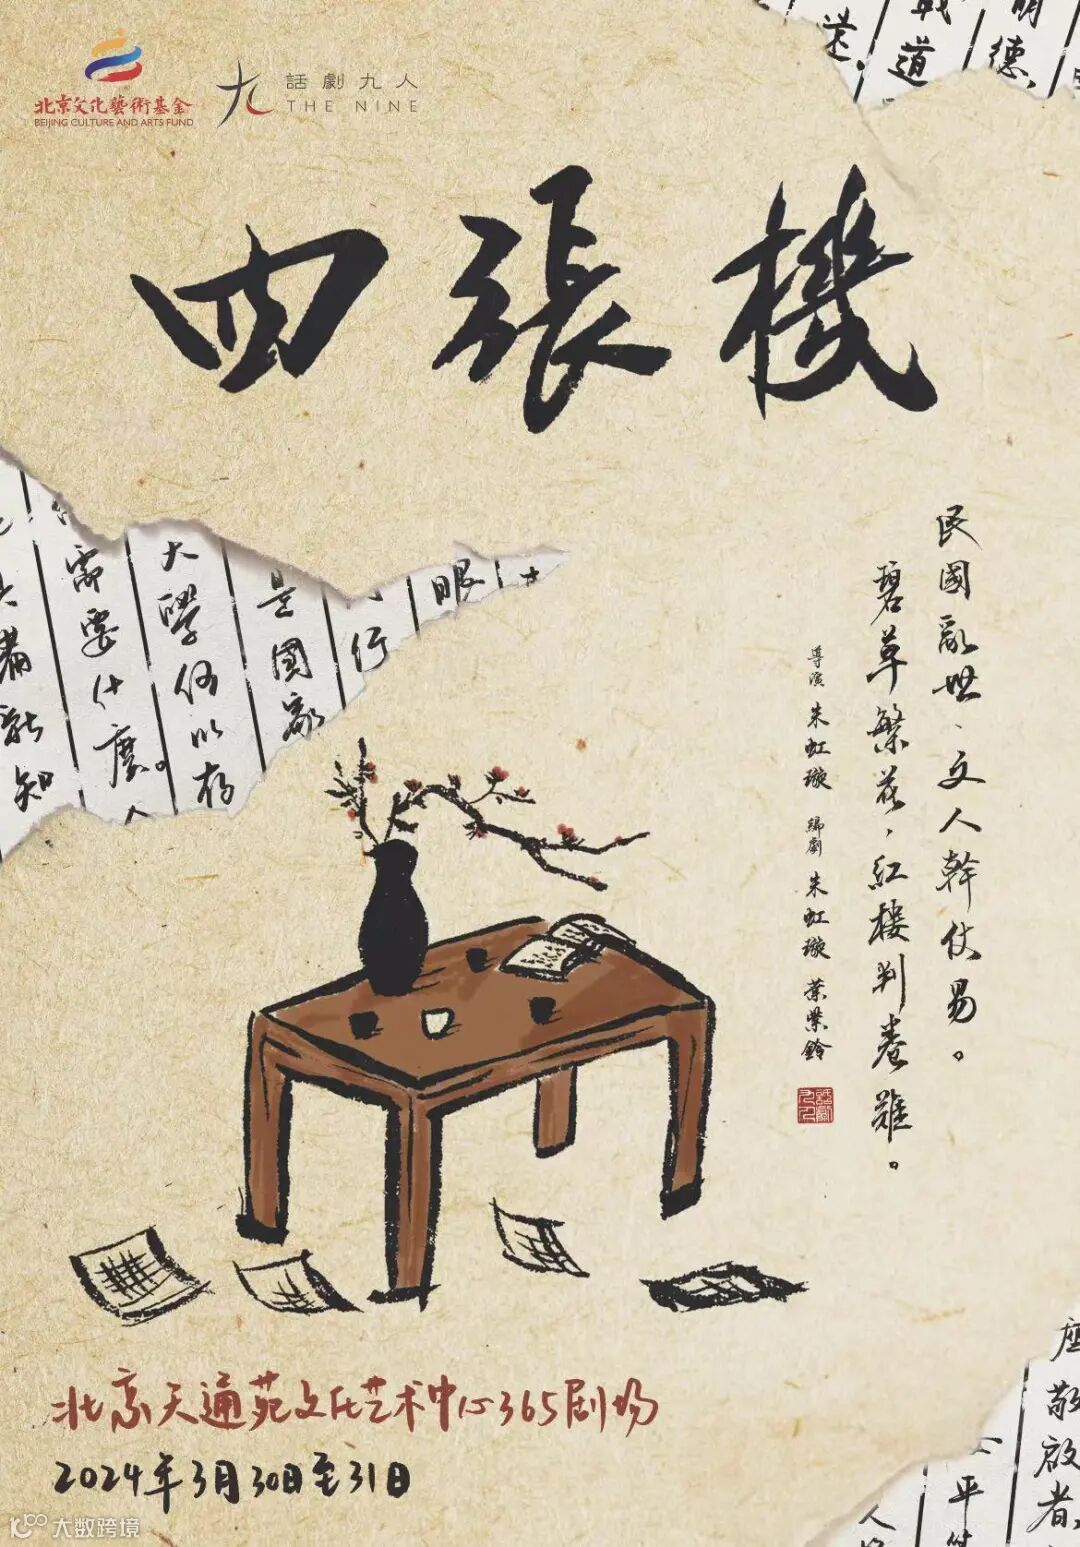 北京文化藝術基金
BEIJING CULTURE AND ARTS FUND
話劇九人
THE NINE
四張機
民國亂世、文人幹仗易。
碧草繁花，紅樓判卷難。
導演 朱虹璇 編劇 朱虹璇 葉紫鈴
話劇九人
需要什麼。人
大學何以存
是國家
行
眼
新知
還
戰道
明德
座
敬啟者
平
人
北京天通苑文化艺术中心365剧场
2024年3月30日至31日
大数跨境